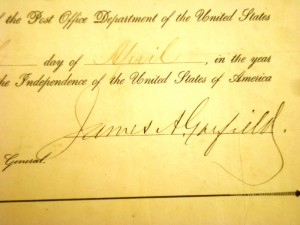 the Post Office Department of the United States
day of April, in the year
the Independence of the United States of America
James A Garfield.
General.